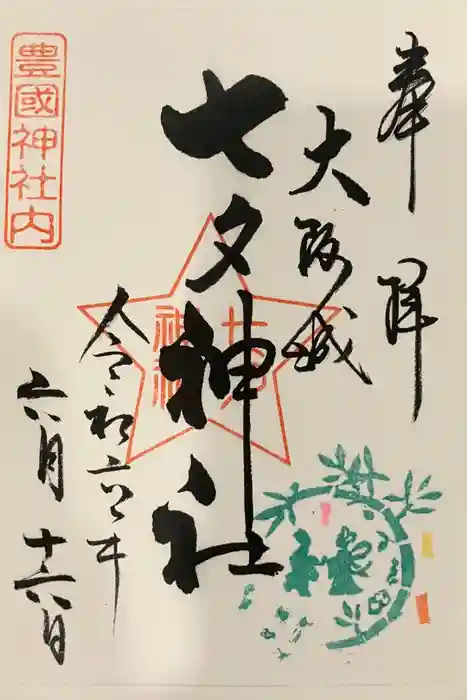 奉拝
大阪城
七夕神社
七夕神社
令和六年
六月十六日
豊國神社内